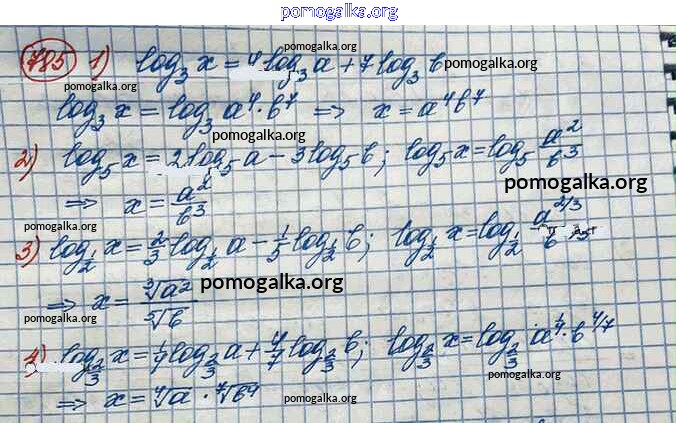 pomogalka.org
785 1) log₃ x = 4 log₃ a + 7 log₃ b
pomogalka.org
pomogalka.org
log₃ x = log₃ a⁴ · b⁷ ⇒ x = a⁴b⁷
pomogalka.org
pomogalka.org
2) log₅ x = 2 log₅ a − 3 log₅ b; log₅ x = log₅ a²/b³
pomogalka.org
⇒ x = a²/b³
pomogalka.org
3) log_1/2 x = 2/3 log_1/2 a − 1/5 log_1/2 b; log_1/2 x = log_1/2 a^2/3 / b
pomogalka.org
⇒ x = ∛a² / ⁵√b
pomogalka.org
pomogalka.org
4) log_2/3 x = 1/4 log_2/3 a + 4/7 log_2/3 b; log_2/3 x = log_2/3 a^1/4 · b^4/7
pomogalka.org
⇒ x = ⁴√a · ⁷√b⁴
pomogalka.org
pomogalka.org